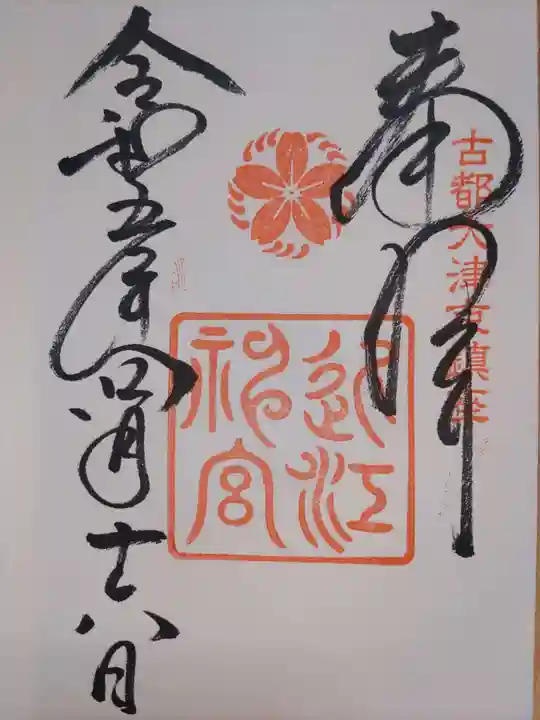 奉拝
古都大津京鎮座
近江
神宮
令和五年四月十八日